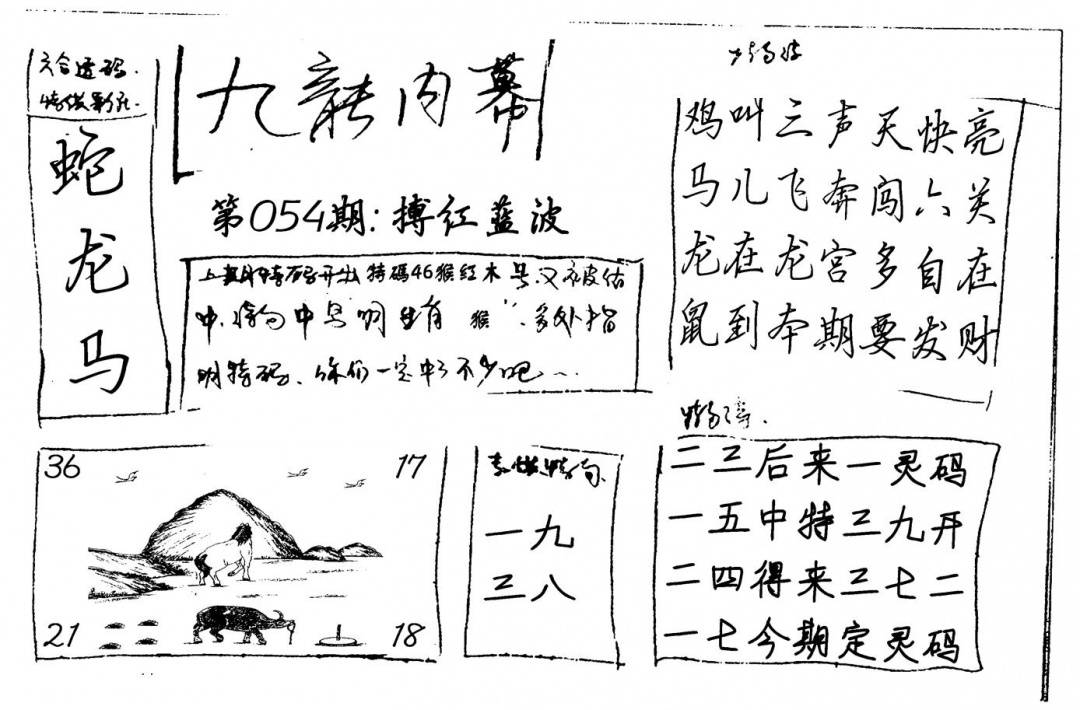 六合透码.
蛇
龙
马
九龍内幕
第054期:搏红蓝波
上期特码开出特碼46猴红木号又被估
中.特句中号明生肖猴".多处指
明特码.你们一定中了不少吧~
鸡叫三声天快亮
马儿飞奔闯六关
龙在龙宫多自在
鼠到本期要发财
36
17
21
18
一九
三八
二三后来一灵码
一五中特三九开
二四得来三七二
一七今期定灵码